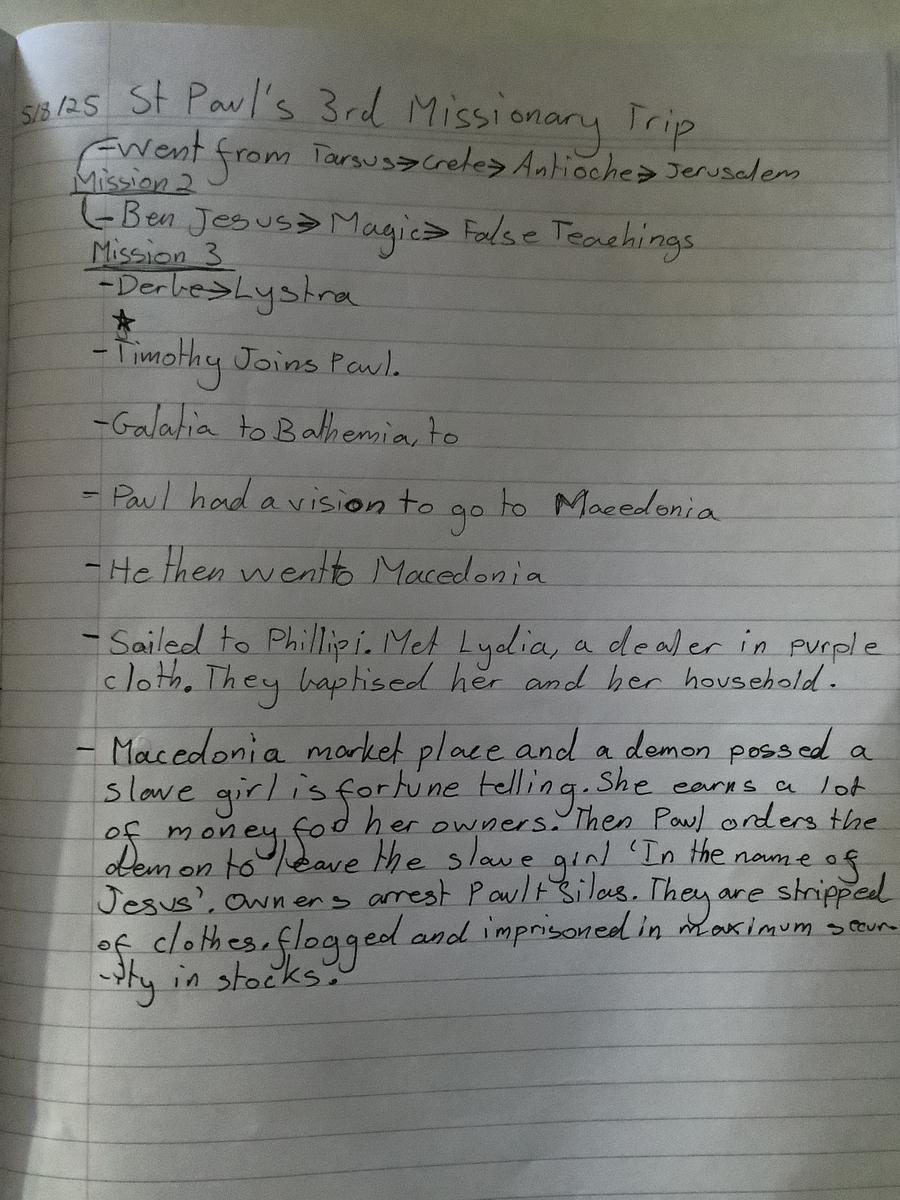 5/8/25 St Paul's 3rd Missionary Trip
-Went from Tarsus⇒Crete⇒Antioche⇒Jerusalem
Mission 2
-Ben Jesus⇒Magic⇒False Teachings
Mission 3
-Derbe⇒Lystra
☆
-Timothy Joins Paul.
-Galatia to Bathemia, to
- Paul had a vision to go to Macedonia
-He then went to Macedonia
- Sailed to Phillipi. Met Lydia, a dealer in purple
cloth. They baptised her and her household.
- Macedonia market place and a demon possed a
slave girl is fortune telling. She earns a lot
of money for her owners. Then Paul orders the
demon to leave the slave girl 'In the name of
Jesus'. Owners arrest Paul + Silas. They are stripped
of clothes. flogged and imprisoned in maximum secur-
-ity in stocks.